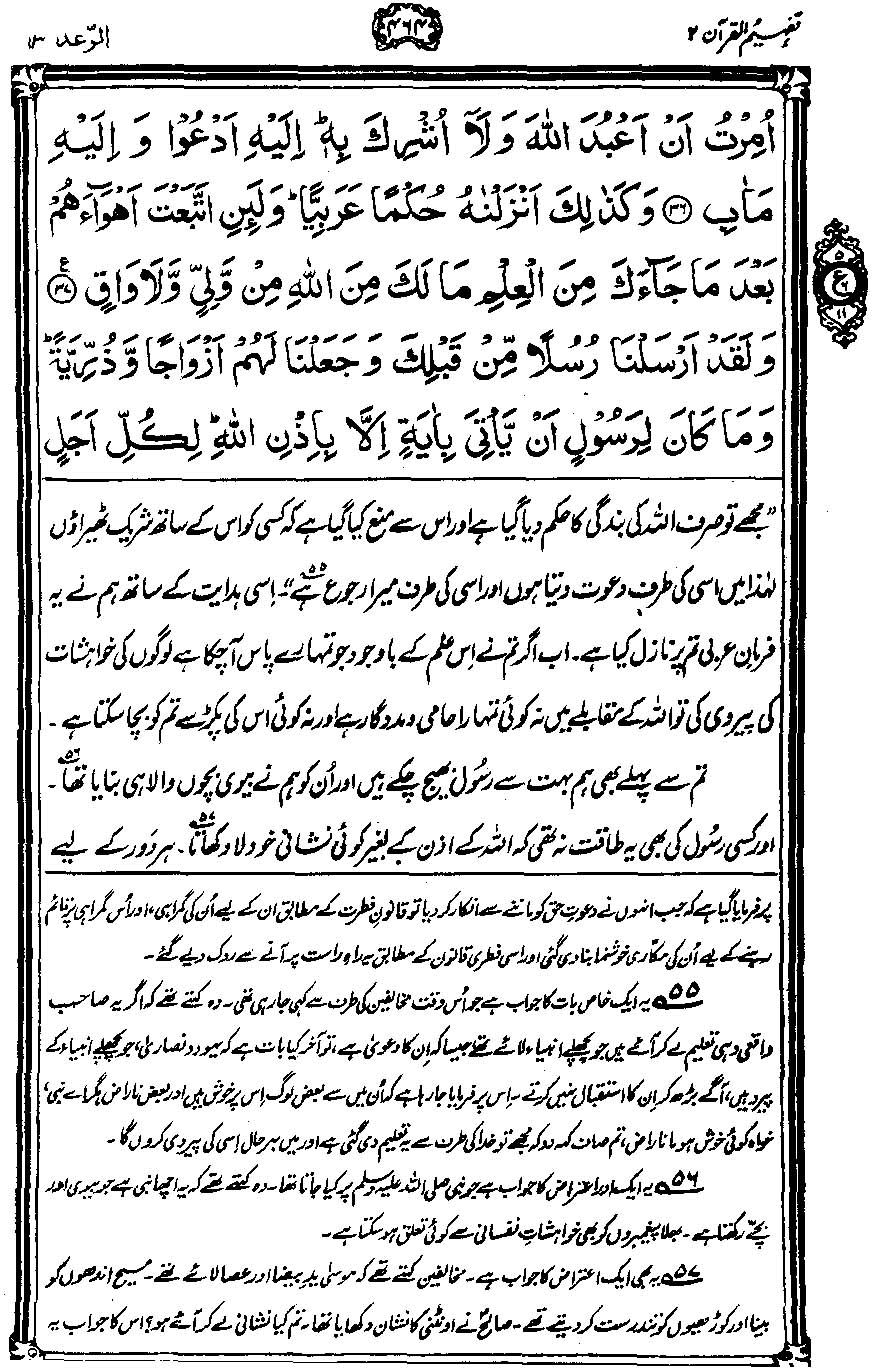 تفہیم القرآن ۲
۴۶۴
الرّعد ۱۳
اُمِرْتُ اَنْ اَعْبُدَ اللّٰهَ وَلَاۤ اُشْرِكَ بِهٖ ؕ اِلَیْهِ اَدْعُوْا وَ اِلَیْهِ
مَاٰبِ ﴿۳۶﴾ وَكَذٰلِكَ اَنْزَلْنٰهُ حُكْمًا عَرَبِیًّا ؕ وَلَىِٕنِ اتَّبَعْتَ اَهْوَآءَهُمْ
بَعْدَ مَا جَآءَكَ مِنَ الْعِلْمِ مَا لَكَ مِنَ اللّٰهِ مِنْ وَّلِیٍّ وَّلَا وَاقٍ ﴿۳۷﴾ ع
۵
ع
۶
۱۱
وَ لَقَدْ اَرْسَلْنَا رُسُلًا مِّنْ قَبْلِكَ وَ جَعَلْنَا لَهُمْ اَزْوَاجًا وَّذُرِّیَّةً ؕ
وَ مَا كَانَ لِرَسُوْلٍ اَنْ یَّاْتِیَ بِاٰیَةٍ اِلَّا بِاِذْنِ اللّٰهِ ؕ لِكُلِّ اَجَلٍ
”مجھے تو صرف اللہ کی بندگی کا حکم دیا گیا ہے اور اس سے منع کیا گیا ہے کہ کسی کو اس کے ساتھ شریک ٹھیراؤں
لہٰذا میں اسی کی طرف دعوت دیتا ہوں اور اسی کی طرف میرا رجوع ہے۵۵“۔ اِسی ہدایت کے ساتھ ہم نے یہ
فرمانِ عربی تم پر نازل کیا ہے۔ اب اگر تم نے اِس علم کے باوجود جو تمہارے پاس آچکا ہے لوگوں کی خواہشات
کی پیروی کی تو اللہ کے مقابلے میں نہ کوئی تمہارا حامی و مددگار ہے اور نہ کوئی اس کی پکڑ سے تم کو بچا سکتا ہے۔
تم سے پہلے بھی ہم بہت سے رسُول بھیج چکے ہیں اور اُن کو ہم نے بیوی بچوں والا ہی بنایا تھا۵۶۔
اور کسی رسُول کی بھی یہ طاقت نہ تھی کہ اللہ کے اذن کے بغیر کوئی نشانی خود لا دکھاتا۵۷۔ ہر دَور کے لیے
پر فرمایا گیا ہے کہ جب انہوں نے دعوتِ حق کو ماننے سے انکار کر دیا تو قانونِ فطرت کے مطابق ان کے لیے اُن کی گمراہی، اور اُس گمراہی پر قائم
رہنے کے لیے اُن کی مکّاری خوشنما بنا دی گئی اور اسی فطری قانون کے مطابق یہ راہِ راست پر آنے سے روک دیے گئے۔
۵۵ یہ ایک خاص بات کا جواب ہے جو اُس وقت مخالفین کی طرف سے کہی جا رہی تھی۔ وہ کہتے تھے کہ اگر یہ صاحب
واقعی وہی تعلیم لے کر آئے ہیں جو پچھلے انبیاء لائے تھے جیسا کہ اِن کا دعویٰ ہے، تو آخر کیا بات ہے کہ یہود و نصاریٰ، جو پچھلے انبیاء کے
پیرو ہیں، آگے بڑھ کر اِن کا استقبال نہیں کرتے۔ اِس پر فرمایا جا رہا ہے کہ اُن میں سے بعض لوگ اِس پر خوش ہیں اور بعض ناراض، مگر اے نبی،
خواہ کوئی خوش ہو یا ناراض، تم صاف کہہ دو کہ مجھے تو خدا کی طرف سے یہ تعلیم دی گئی ہے اور میں بہرحال اِسی کی پیروی کروں گا۔
۵۶ یہ ایک اور اعتراض کا جواب ہے جو نبی صلی اللہ علیہ وسلم پر کیا جاتا تھا۔ وہ کہتے تھے کہ یہ اچھا نبی ہے جو بیوی اور
بچے رکھتا ہے۔ بھلا پیغمبروں کو بھی خواہشاتِ نفسانی سے کوئی تعلق ہو سکتا ہے۔
۵۷ یہ بھی ایک اعتراض کا جواب ہے۔ مخالفین کہتے تھے کہ موسیٰ یدِ بیضا اور عصا لائے تھے۔ مسیح اندھوں کو
بینا اور کوڑھیوں کو تندرست کر دیتے تھے۔ صالحؑ نے اونٹنی کا نشان دکھایا تھا۔ تم کیا نشانی لے کر آئے ہو؟ اس کا جواب یہ